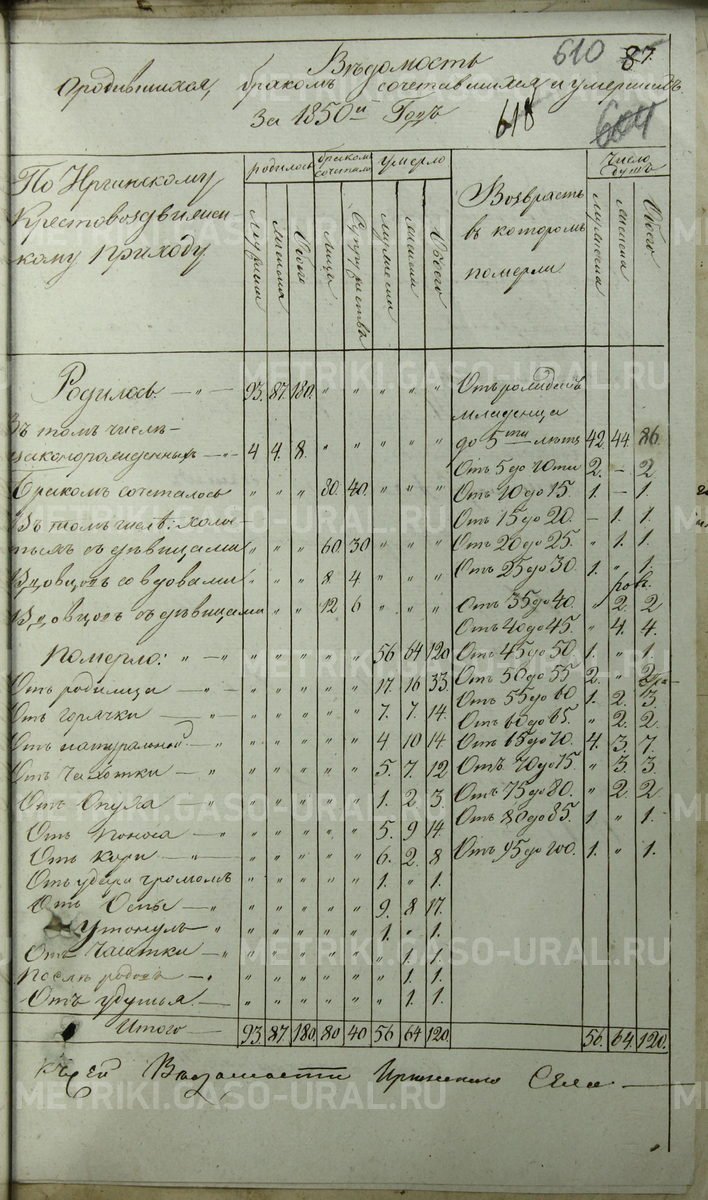 610 87.
Вѣдомость
о родившихся, бракомъ сочетавшихся и умершихъ
За 1850й Годъ.
618 604
По Иргинскому
Крестовоздвиженс
кому Приходу
родилось бракомъ сочеталось умерло
Возврастъ
въ которомъ
померли
Число
мужеска женска Обоего Лица Супружества мужеска женска Обоего
мужеска женска Обоего
Родилось — " — 93. 87. 180. " " " " "
Въ томъ числѣ
незаконорожденныхъ — " 4 4. 8. " " " " "
Бракомъ сочеталось " " " 80. 40. " " "
Въ томъ числѣ: холос
тыхъ съ дѣвицами " " " 60. 30 " " "
Вдовцовъ со вдовами " " " 8 4 " " "
Вдовцовъ съ дѣвицами " " " 12 6 " " "
Померло: " — " " " " " " 56 64 120
Отъ родимца — " " " " " " 17. 16 33.
Отъ горячки — " " " " " " 7. 7. 14.
Отъ натуральной — " " " " " " 4 10 14
Отъ Чахотки — " " " " " " 5. 7. 12
Отъ Опухла — " " " " " " 1. 2. 3.
Отъ Поноса — " " " " " " 5. 9 14
Отъ Кори — " — " " " " " " 6. 2. 8
Отъ удара громомъ " " " " " 1. " 1.
Отъ Оспы — " " " " " " 9. 8 17.
Утонулъ — " " " " " " 1. " 1.
Отъ Чахотки — " " " " " " " 1. 1.
Послѣ родовъ — " " " " " " " 1. 1.
Отъ удушья. — " " " " " " 1. 1.
Итого — 93. 87. 180. 80 40 56 64 120.
Отъ рождествъ
младенца
до 5ти лѣтъ 42. 44. 86.
Отъ 5 до 10ти 2. — 2
Отъ 10 до 15. 1. — 1.
Отъ 15 до 20. — 1. 1.
Отъ 20 до 25. " 1. 1.
Отъ 25 до 30. 1. " 1.
Отъ 35 до 40. " 2. 2
Отъ 40 до 45. " 4. 4.
Отъ 45 до 50 1. " 1.
Отъ 50 до 55 2. " 2
Отъ 55 до 60 1. 2. 3.
Отъ 60 до 65. " 2. 2.
Отъ 65 до 70. 4. 3. 7
Отъ 70 до 75 " 3. 3.
Отъ 75 до 80. " 2. 2
Отъ 80 до 85. 1. " 1.
Отъ 95 до 100. 1. " 1.
56. 64. 120.
Къ сей Вѣдомости Иргинскаго Села
METRIKI.GASO-URAL.RU